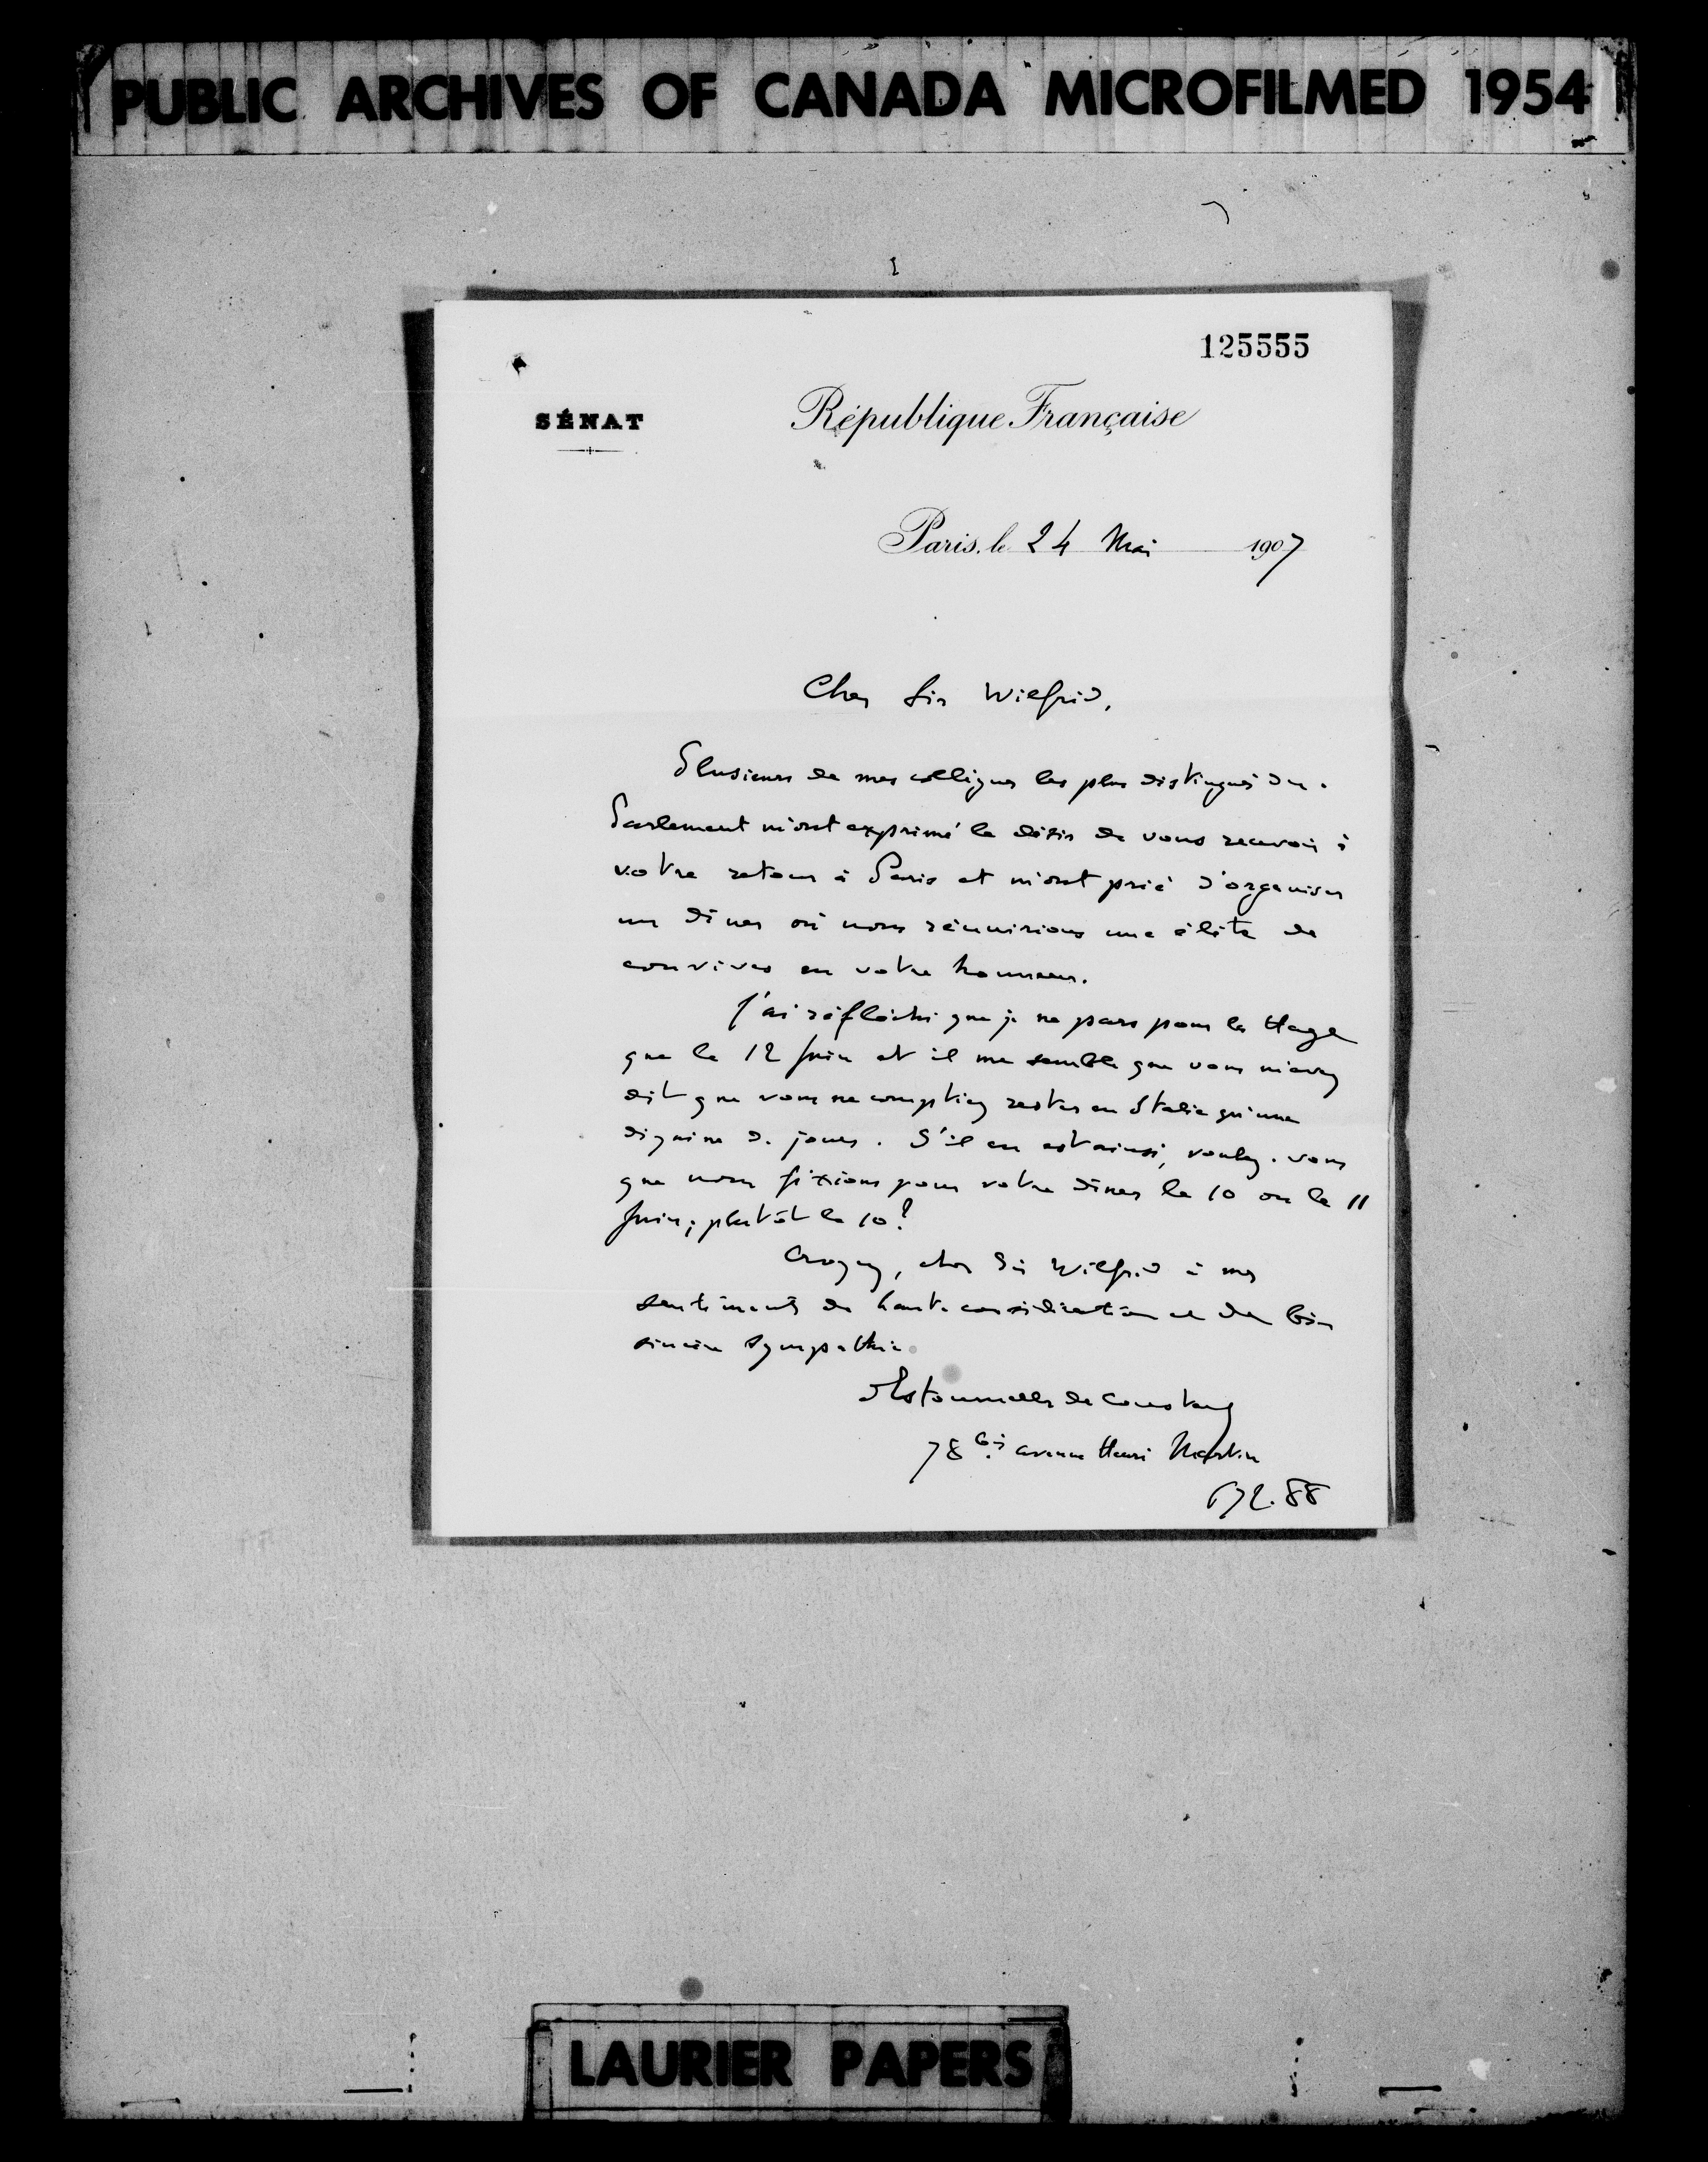 PUBLIC ARCHIVES OF CANADA MICROFILMED 1954
125555
SÉNAT
République Française
Paris, le 24 Mai 1907
Cher Sir Wilfrid,
Plusieurs de mes collègues les plus distingués du
Parlement m'ont exprimé le désir de vous recevoir à
votre retour à Paris et m'ont prié d'organiser
un dîner où nous réunirions une élite de
convives en votre honneur.
J'ai réfléchi que je ne pars pour la Haye
que le 12 Juin et il me semble que vous m'avez
dit que vous ne comptiez rester en Italie qu'une
dizaine de jours. S'il en est ainsi, voulez-vous
que nous fixions pour votre dîner le 10 ou le 11
Juin; plutôt le 10?
Croyez, cher Sir Wilfrid à mes
sentiments de haute considération et de bien
sincère sympathie.
d'Estournelles de Constant
78 bis avenue Henri Martin
672.88
LAURIER PAPERS